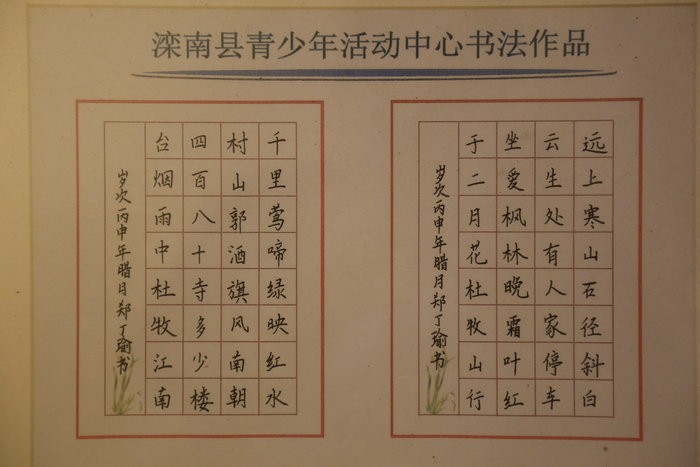 滦南县青少年活动中心书法作品
远上寒山石径斜白
云生处有人家停车
坐爱枫林晚霜叶红
于二月花杜牧山行
岁次丙申年腊月郑丁瑜书
千里莺啼绿映红水
村山郭酒旗风南朝
四百八十寺多少楼
台烟雨中杜牧江南
岁次丙申年腊月郑丁瑜书